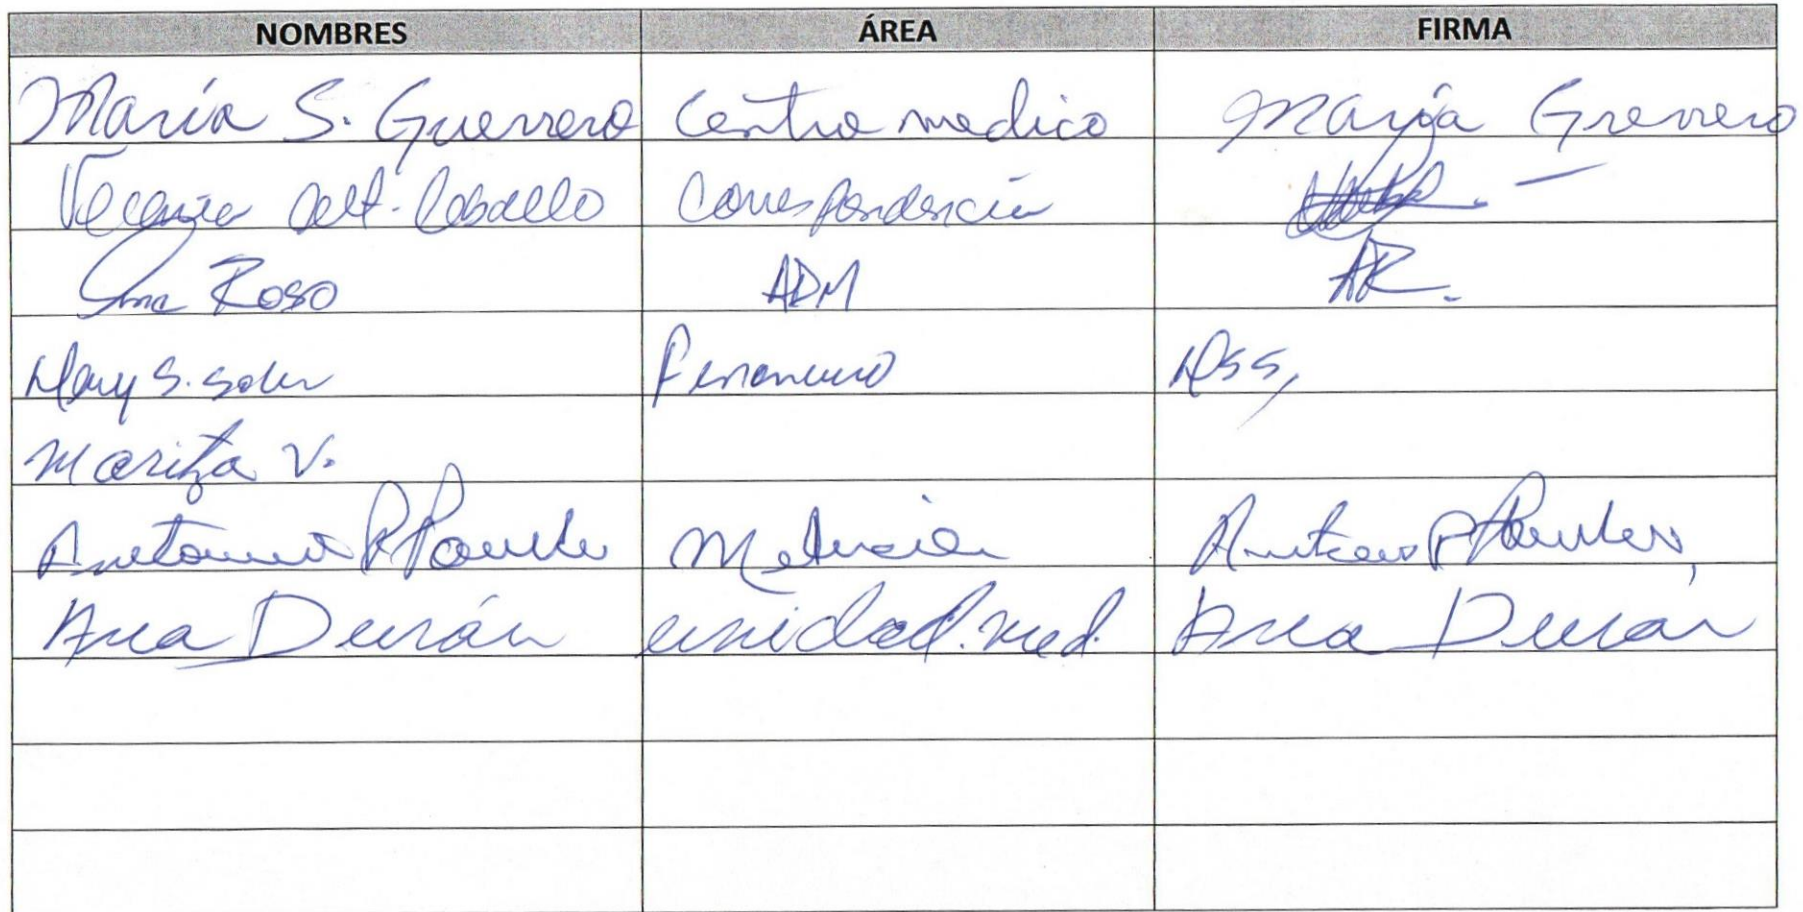 NOMBRES ÁREA FIRMA
María S. Guerrero Centro medico María Guerrero
Correspondencia
Ana Roso ADM AR.
Mary S. Soler Financiero MSS,
Maritza V.
Antonio P Medicina Antonio P
Ana Durán unidad. med. Ana Durán